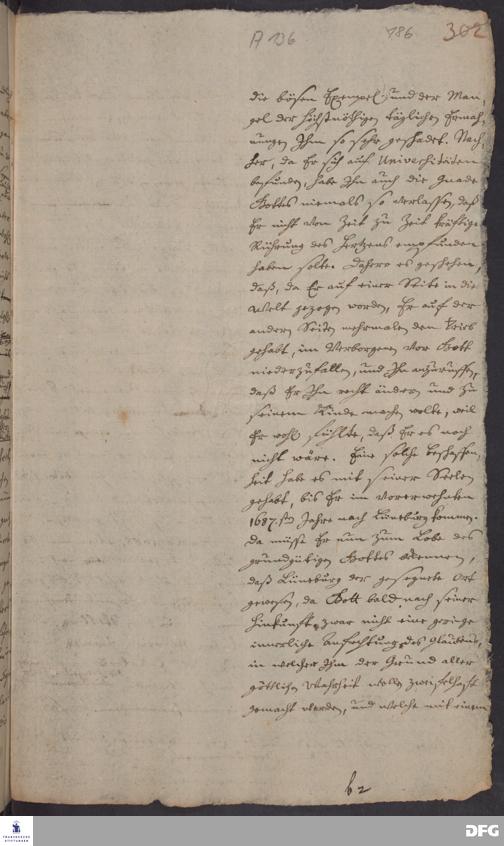 A 136 186 302
die bösen Exempel, und der Man-
gel der höchstnöthigen täglichen Ermah-
nungen Ihm so sehr geschadet. Nach-
her, da Er sich auf Universitäten
befunden, habe Ihn auch die Gnade
Gottes niemals so verlassen, daß
Er nicht von Zeit zu Zeit kräftige
Rührung des Hertzens empfunden
haben solte. Dahero es geschehen,
daß, da Er auf einer Seite in die
Welt gezogen worden, Er auf der
andern Seiten mehrmalen den
gehabt, im Verborgenen vor Gott
niederzufallen, und Ihn anzuruffen,
daß Er Ihn recht ändern und zu
seinem Kinde machen wolte, weil
Er wohl fühlte, daß Er es noch
nicht wäre. Eine solche Beschaffen-
heit habe es mit seiner Seelen
gehabt, bis Er im vorerwehnten
1687. Jahre nach Lüneburg kommen.
Da müsse Er nun zum Lobe des
grundgütigen Gottes bekennen,
daß Lüneburg der gesegnete Ort
gewesen, da Gott bald nach seiner
Hinkunft, zwar nicht eine geringe
innerliche Anfechtung des Glaubens,
in welcher Ihm der Grund aller
göttlichen Wahrheit wollen zweifelhaft
gemacht werden, und welche mit einem
b 2
FRANCKESCHE
STIFTUNGEN
DFG